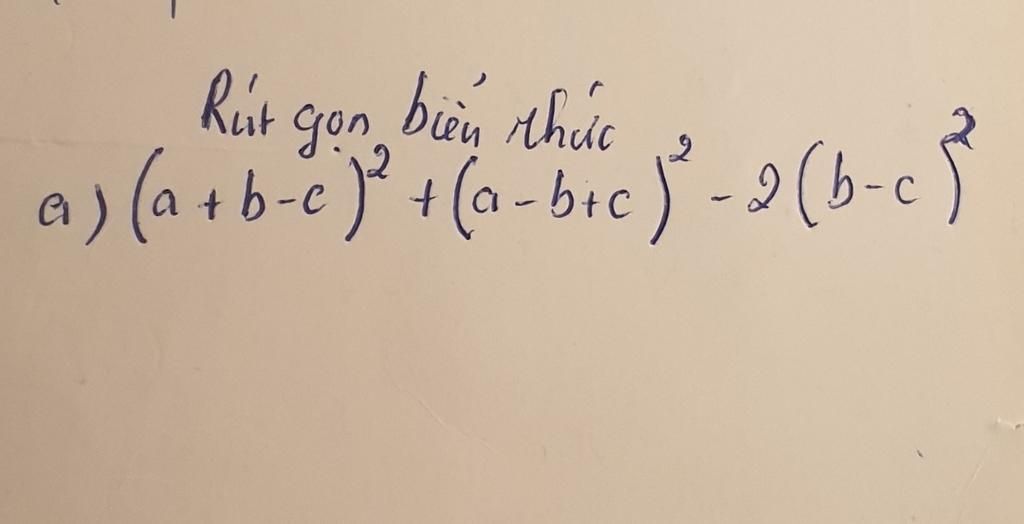 Rút gọn biểu thức
a) (a + b - c)² + (a - b + c)² - 2(b - c)²